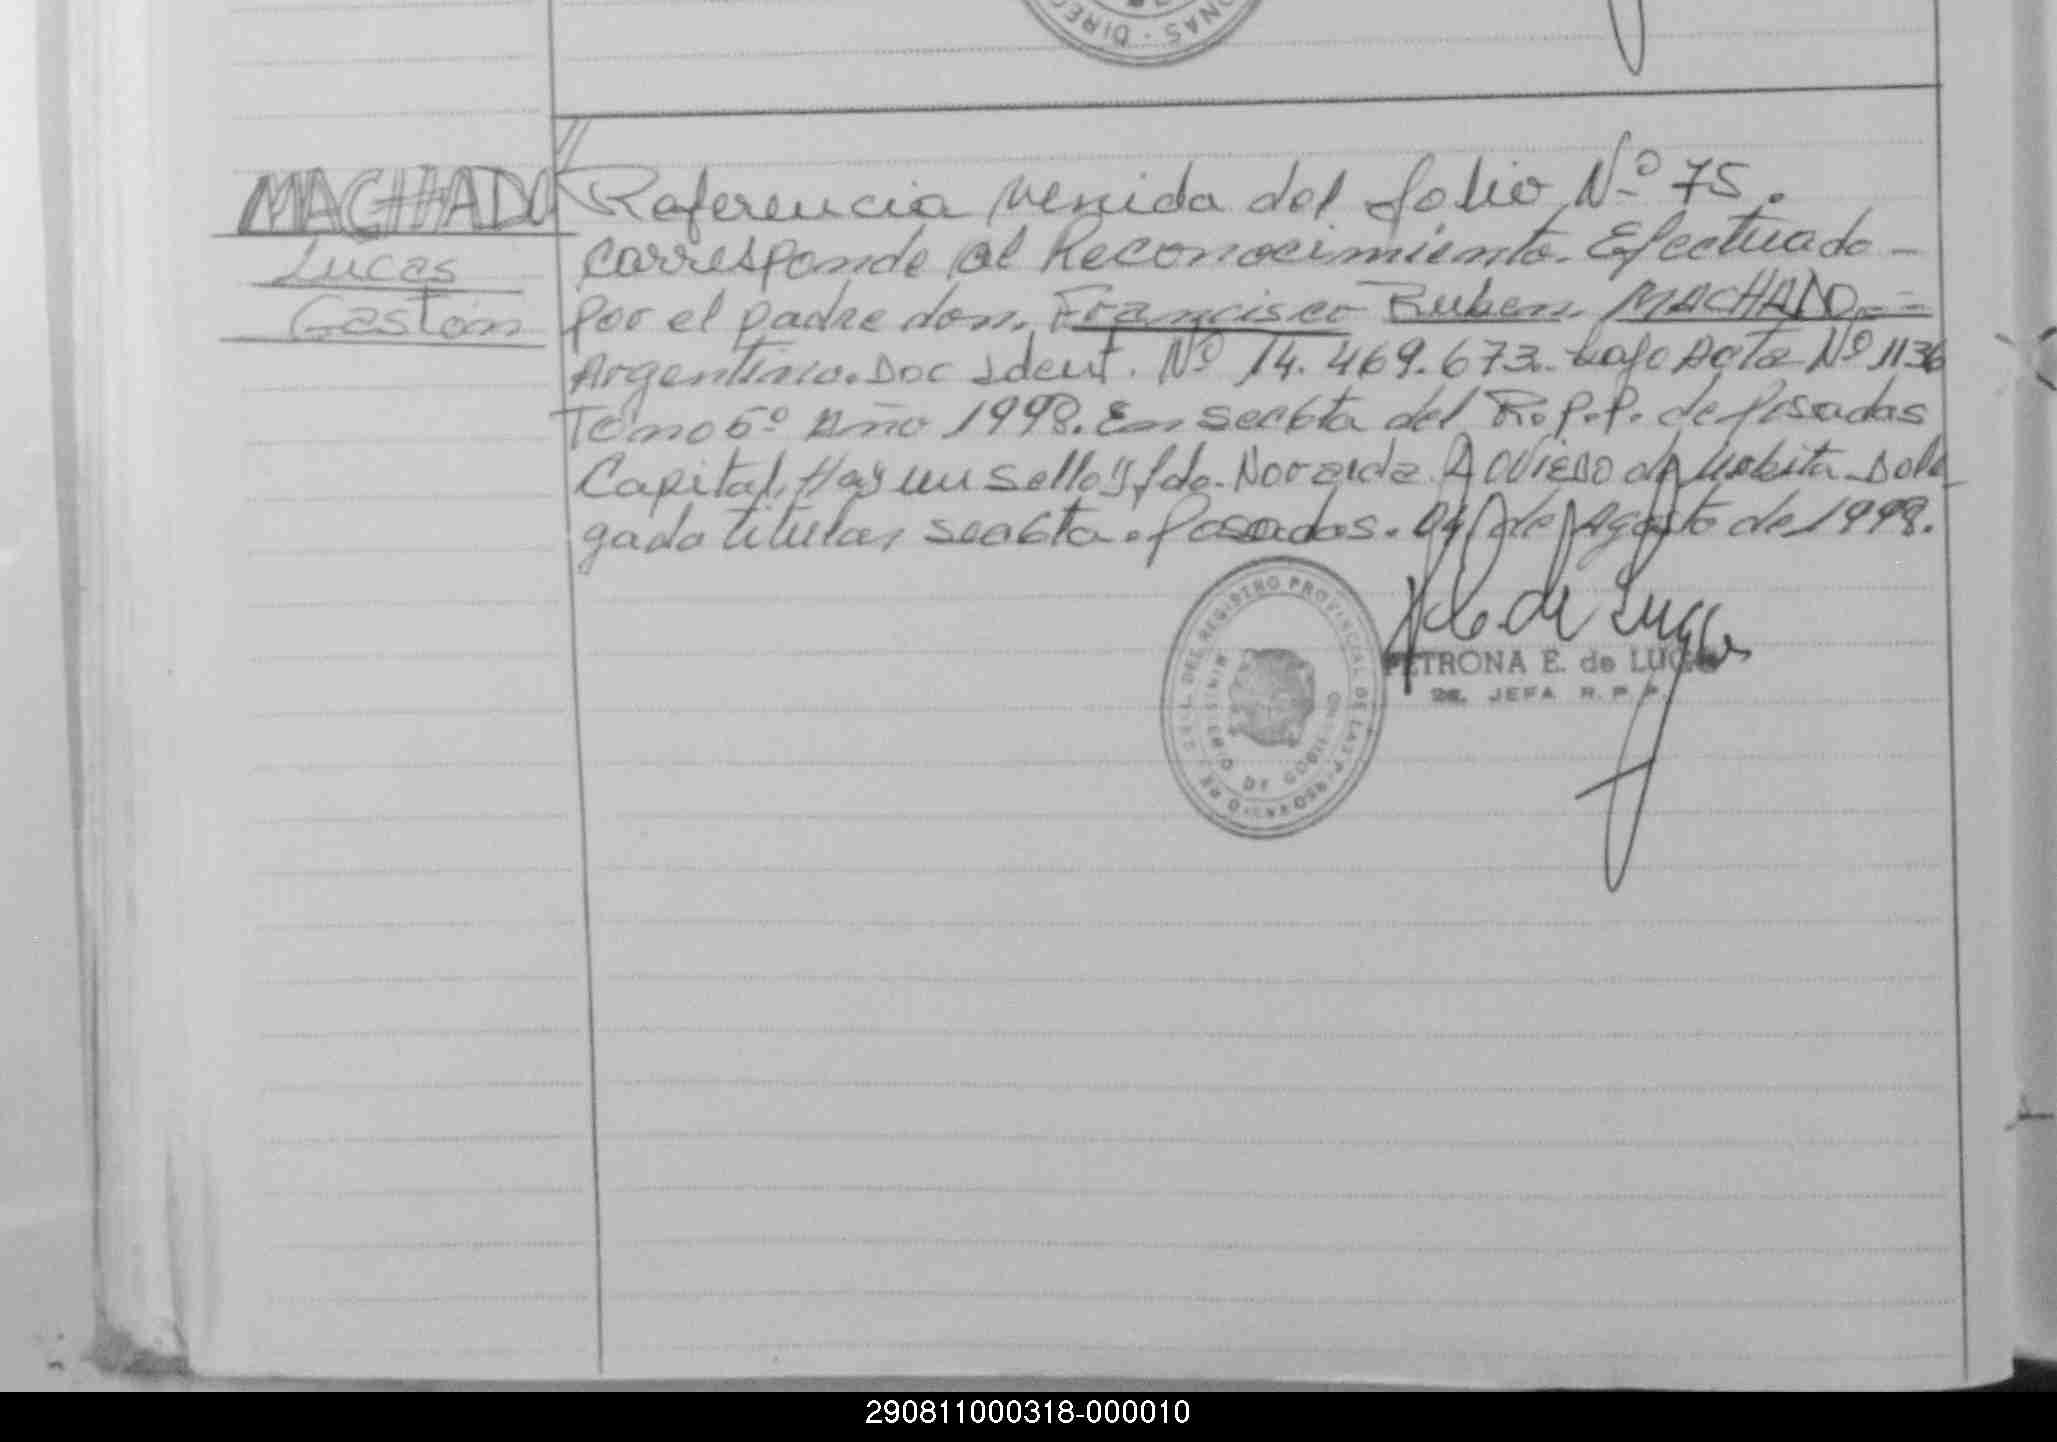 MACHADO
Lucas
Gastón
Referencia venida del folio Nº 75.
Corresponde al Reconocimiento. Efectuado -
por el padre don. Francisco Ruben. MACHADO.=
Argentino. Doc Ident. Nº 14.469.673. bajo Acta Nº 1136
Tomo 6º Año 1998. En Sec 6ta del R.P.P. de Posadas
Capital. Hay un sello y fdo. A OVIEDO de Dele
gada titular sec 6ta. Posadas. de Agosto de 1998.
PETRONA E. de LUGO
JEFA R. P. P.
DEL REGISTRO PROVINCIAL DE LAS PERSONAS
MINISTERIO DE GOBIERNO
290811000318-000010